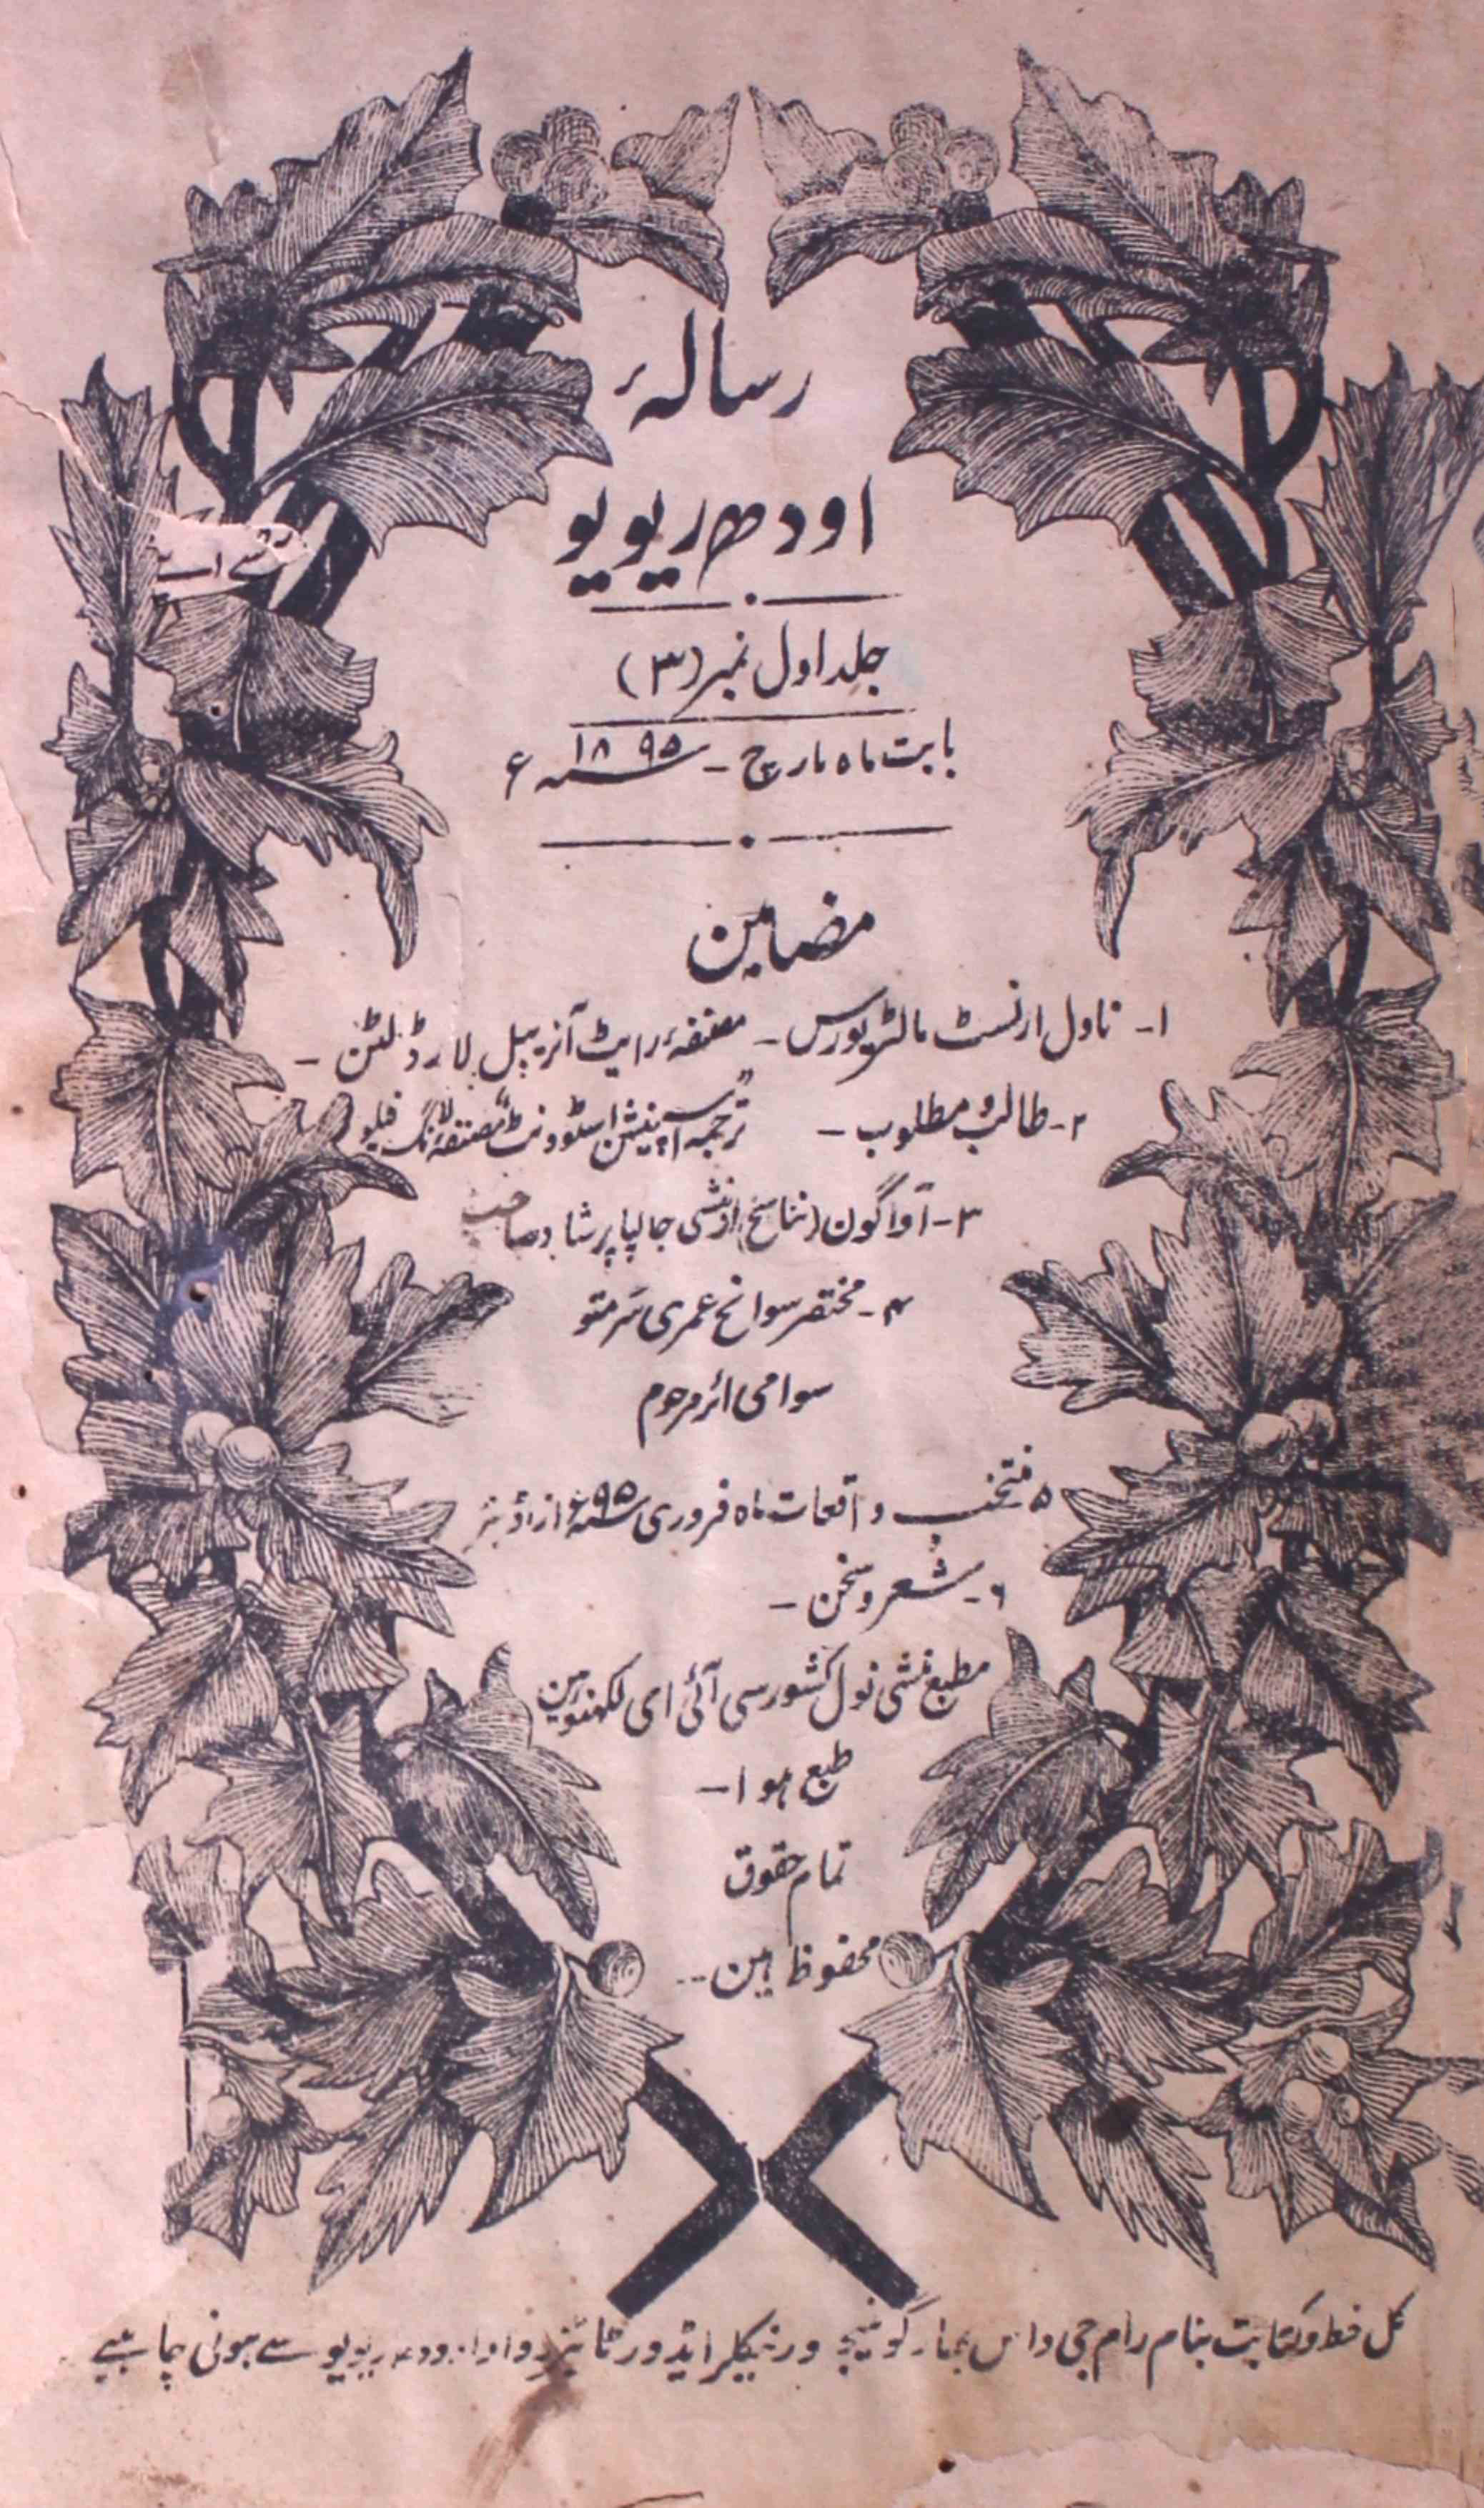 رسالہٴ
اودھ ریویو
جلد اول نمبر (۳)
بابت ماہ مارچ - سنہ ۱۸۹۵ ء
مضامین
۱- ناول ارنسٹ مالٹریورس - مصنفہٴ رایٹ آنریبل لارڈ لٹن -
۲- طالب و مطلوب - ترجمہ "اسپنیش اسٹوڈنٹ" مصنفہٴ لانگ فیلو
۳- آواگون (تناسخ) از منشی جالپا پرشاد صاحب
۴- مختصر سوانح عمری سر متو
سوامی ائر مرحوم
۵ منتخب واقعات ماہ فروری سنہ ۹۵ ء از اڈیٹر
۶- شعر و سخن -
مطبع منشی نول کشور سی آئی ای لکھنو مین
طبع ہوا -
تمام حقوق
محفوظ ہین --
کل خط و کتابت بنام رام جی داس بھارگو نیچر ورنیکلر ایڈورٹائیزر و اودھ ریویو سے ہونی چاہیے